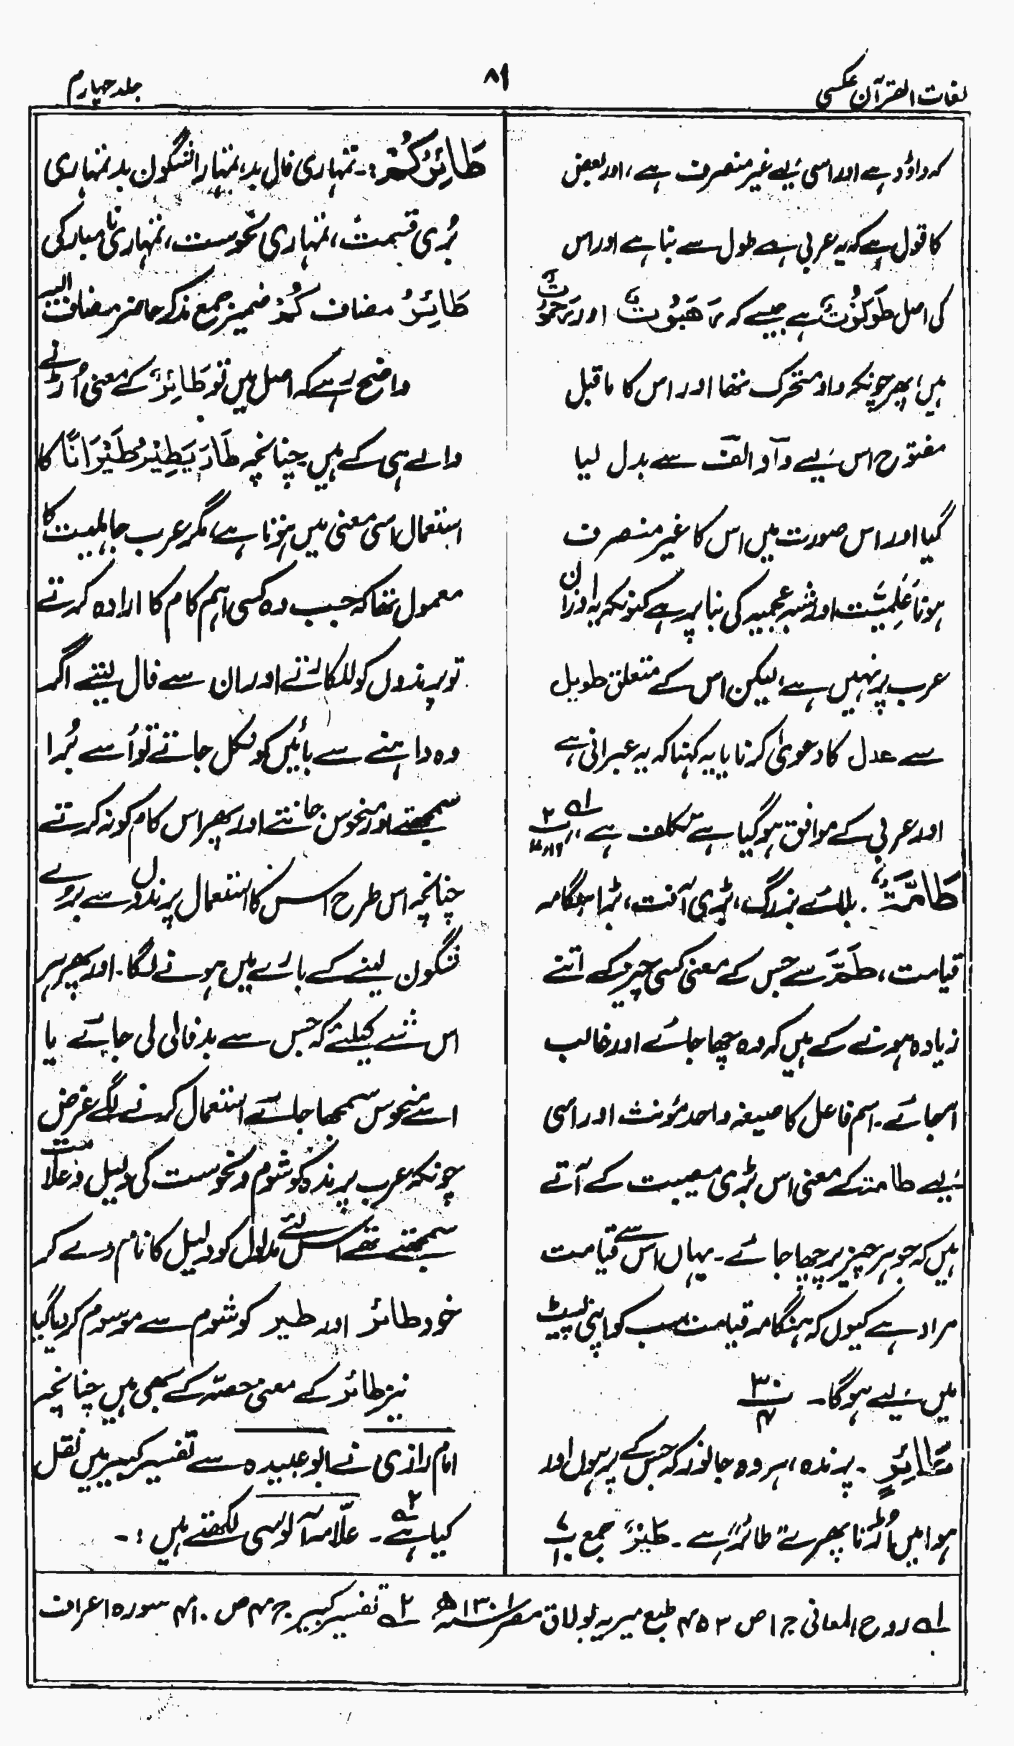 لغات القرآن عکسی
۸۱
جلد چہارم
کہ داؤد ہے اور اسی لیے غیر منصرف ہے، اور بعض
کا قول ہے کہ یہ عربی ہے طول سے بنا ہے اور اس
کی اصل طَوَلُوْتٌ ہے جیسے کہ رَهَبُوْتٌ اور رَحَمُوْتٌ
ہیں، پھر چونکہ واؤ متحرک تھا اور اس کا ماقبل
مفتوح اس لیے واؤ الف سے بدل لیا
گیا اور اس صورت میں اس کا غیر منصرف
ہونا عَلَمِیَّت اور شبہ عجمیہ کی بنا پر ہے کیونکہ یہ اوزان
عرب پر نہیں ہے، لیکن اس کے متعلق طویل
سے عدل کا دعویٰ کرنا یا یہ کہنا کہ یہ عبرانی ہے
اور عربی کے موافق ہو گیا ہے تکلف ہے لہ ۲
طَامَّةُ ۔ بلائے بزرگ، بڑی آفت، بڑا ہنگامہ
قیامت، طَمٌّ سے جس کے معنی کسی چیز کے اتنے
زیادہ ہونے کے ہیں کہ وہ چھا جائے اور غالب
آجائے۔ اسم فاعل کا صیغہ واحد مؤنث اور اسی
لیے طامۃ کے معنی اس بڑی مصیبت کے آتے
ہیں کہ جو ہر چیز پر چھا جائے۔ یہاں اس سے قیامت
مراد ہے کیوں کہ ہنگامہ قیامت سب کو اپنی لپیٹ
میں لیے ہوگا۔ ۳۰
طَائِرٍ ۔ پرندہ، ہر وہ جانور کہ جس کے پر ہوں اور
ہوا میں اُڑتا پھرے طائر ہے۔ طَیْرٌ جمع
طَائِرُكُمْ :۔ تمہاری فال بد، تمہارا شگون بد تمہاری
بُری قسمت، تمہاری نحوست، تمہاری نا مبارکی
طَائِرُ مضاف كُمْ ضمیر جمع مذکر حاضر مضاف الیہ
واضح رہے کہ اصل میں تو طَائِرٌ کے معنی اُڑنے
والے ہی کے ہیں چنانچہ طَارَ يَطِيْرُ طَيْرَانًا کا
استعمال اسی معنی میں ہوتا ہے، مگر عرب جاہلیت کا
معمول تھا کہ جب وہ کسی اہم کام کا ارادہ کرتے
تو پرندوں کو للکارتے اور ان سے فال لیتے اگر
وہ داہنے سے بائیں کو نکل جاتے تو اُسے بُرا
سمجھتے اور منحوس جانتے اور پھر اس کام کو نہ کرتے
چنانچہ اس طرح اس کا استعمال پرندوں سے برے
شگون لینے کے بارے میں ہونے لگا۔ اور پھر ہر
اس شے کیلئے کہ جس سے بدفالی لی جائے یا
اسے منحوس سمجھا جائے استعمال کرنے لگے غرض
چونکہ عرب پرندہ کو شوم و نحوست کی دلیل و علامت
سمجھتے تھے اس لئے مدلول کو دلیل کا نام دے کر
خود طائر اور طیر کو شوم سے موسوم کر دیا گیا
نیز طائر کے معنی حصّہ کے بھی ہیں چنانچہ
امام رازی نے ابو عبیدہ سے تفسیر کبیر میں نقل
کیا ہے ۲ہ ۔ علّامہ آلوسی لکھتے ہیں :۔
لہ روح المعانی ج ۱ ص ۴۵۲ طبع میریہ بولاق مصر سنہ ۱۳۰۱ھ ۲ہ تفسیر کبیر ج ۴ ص ۴۱۰ سورہ اعراف